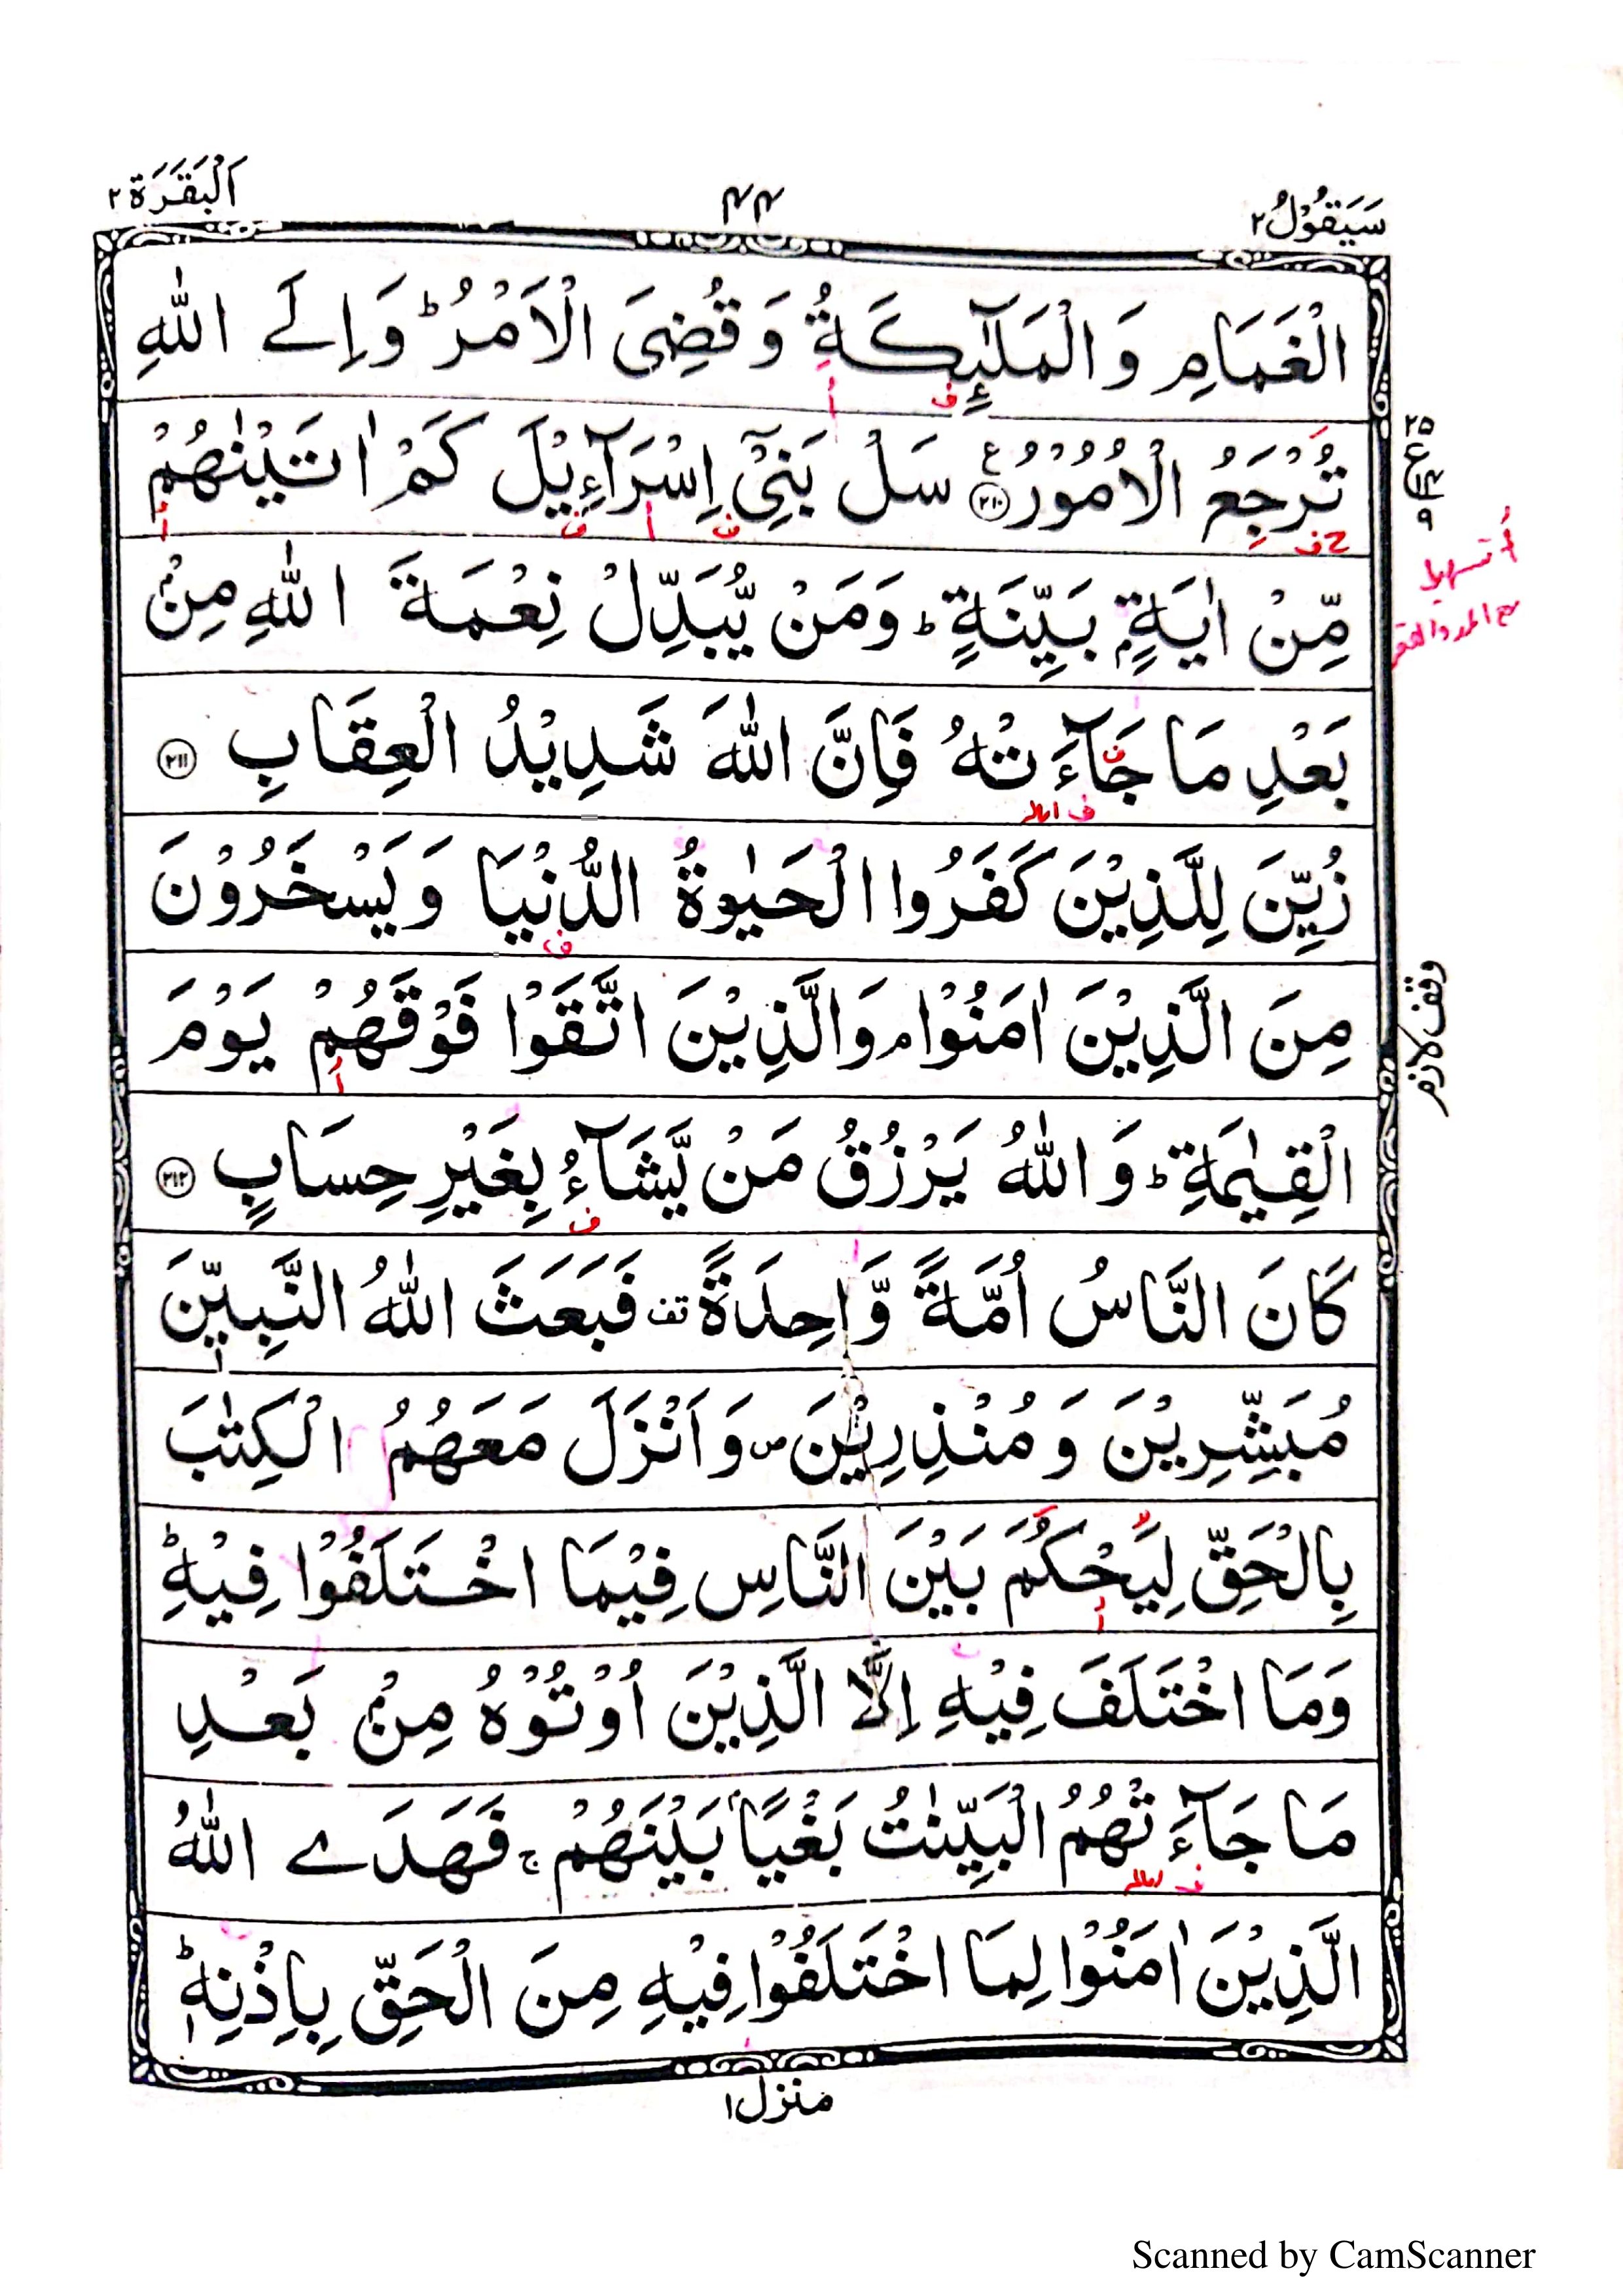 سَيَقُوْلُ ٢
٤٤
اَلْبَقَرَة ٢
الْغَمَامِ وَ الْمَلٰٓئِكَةُ وَ قُضِیَ الْاَمْرُ ؕ وَ اِلَے اللّٰهِ
تُرْجَعُ الْاُمُوْرُ ﴿٢١٠﴾ ع سَلْ بَنِیْۤ اِسْرَآءِيْلَ كَمْ اٰتَيْنٰهُمْ
٢٥
ع
٩
مِّنْ اٰيَةٍۭ بَيِّنَةٍ ؕ وَمَنْ يُّبَدِّلْ نِعْمَةَ اللّٰهِ مِنْۢ
أ تسهيل
مع المد والقصر
بَعْدِ مَا جَآءَتْهُ فَاِنَّ اللّٰهَ شَدِيْدُ الْعِقَابِ ﴿٢١١﴾
ف امالہ
زُيِّنَ لِلَّذِيْنَ كَفَرُوا الْحَيٰوةُ الدُّنْيَا وَيَسْخَرُوْنَ
مِنَ الَّذِيْنَ اٰمَنُوْا ۘ وَالَّذِيْنَ اتَّقَوْا فَوْقَهُمْ يَوْمَ
وقف لازم
الْقِيٰمَةِ ؕ وَ اللّٰهُ يَرْزُقُ مَنْ يَّشَآءُ بِغَيْرِ حِسَابٍ ﴿٢١٢﴾
كَانَ النَّاسُ اُمَّةً وَّاحِدَةً قف فَبَعَثَ اللّٰهُ النَّبِيّٖنَ
مُبَشِّرِيْنَ وَ مُنْذِرِيْنَ ص وَ اَنْزَلَ مَعَهُمُ الْكِتٰبَ
بِالْحَقِّ لِيَحْكُمَ بَيْنَ النَّاسِ فِيْمَا اخْتَلَفُوْا فِيْهِ ؕ
وَمَا اخْتَلَفَ فِيْهِ اِلَّا الَّذِيْنَ اُوْتُوْهُ مِنْۢ بَعْدِ
مَا جَآءَتْهُمُ الْبَيِّنٰتُ بَغْيًاۢ بَيْنَهُمْ ج فَهَدَے اللّٰهُ
ف امالہ
الَّذِيْنَ اٰمَنُوْا لِمَا اخْتَلَفُوْا فِيْهِ مِنَ الْحَقِّ بِاِذْنِهٖ ؕ
منزل ١
Scanned by CamScanner